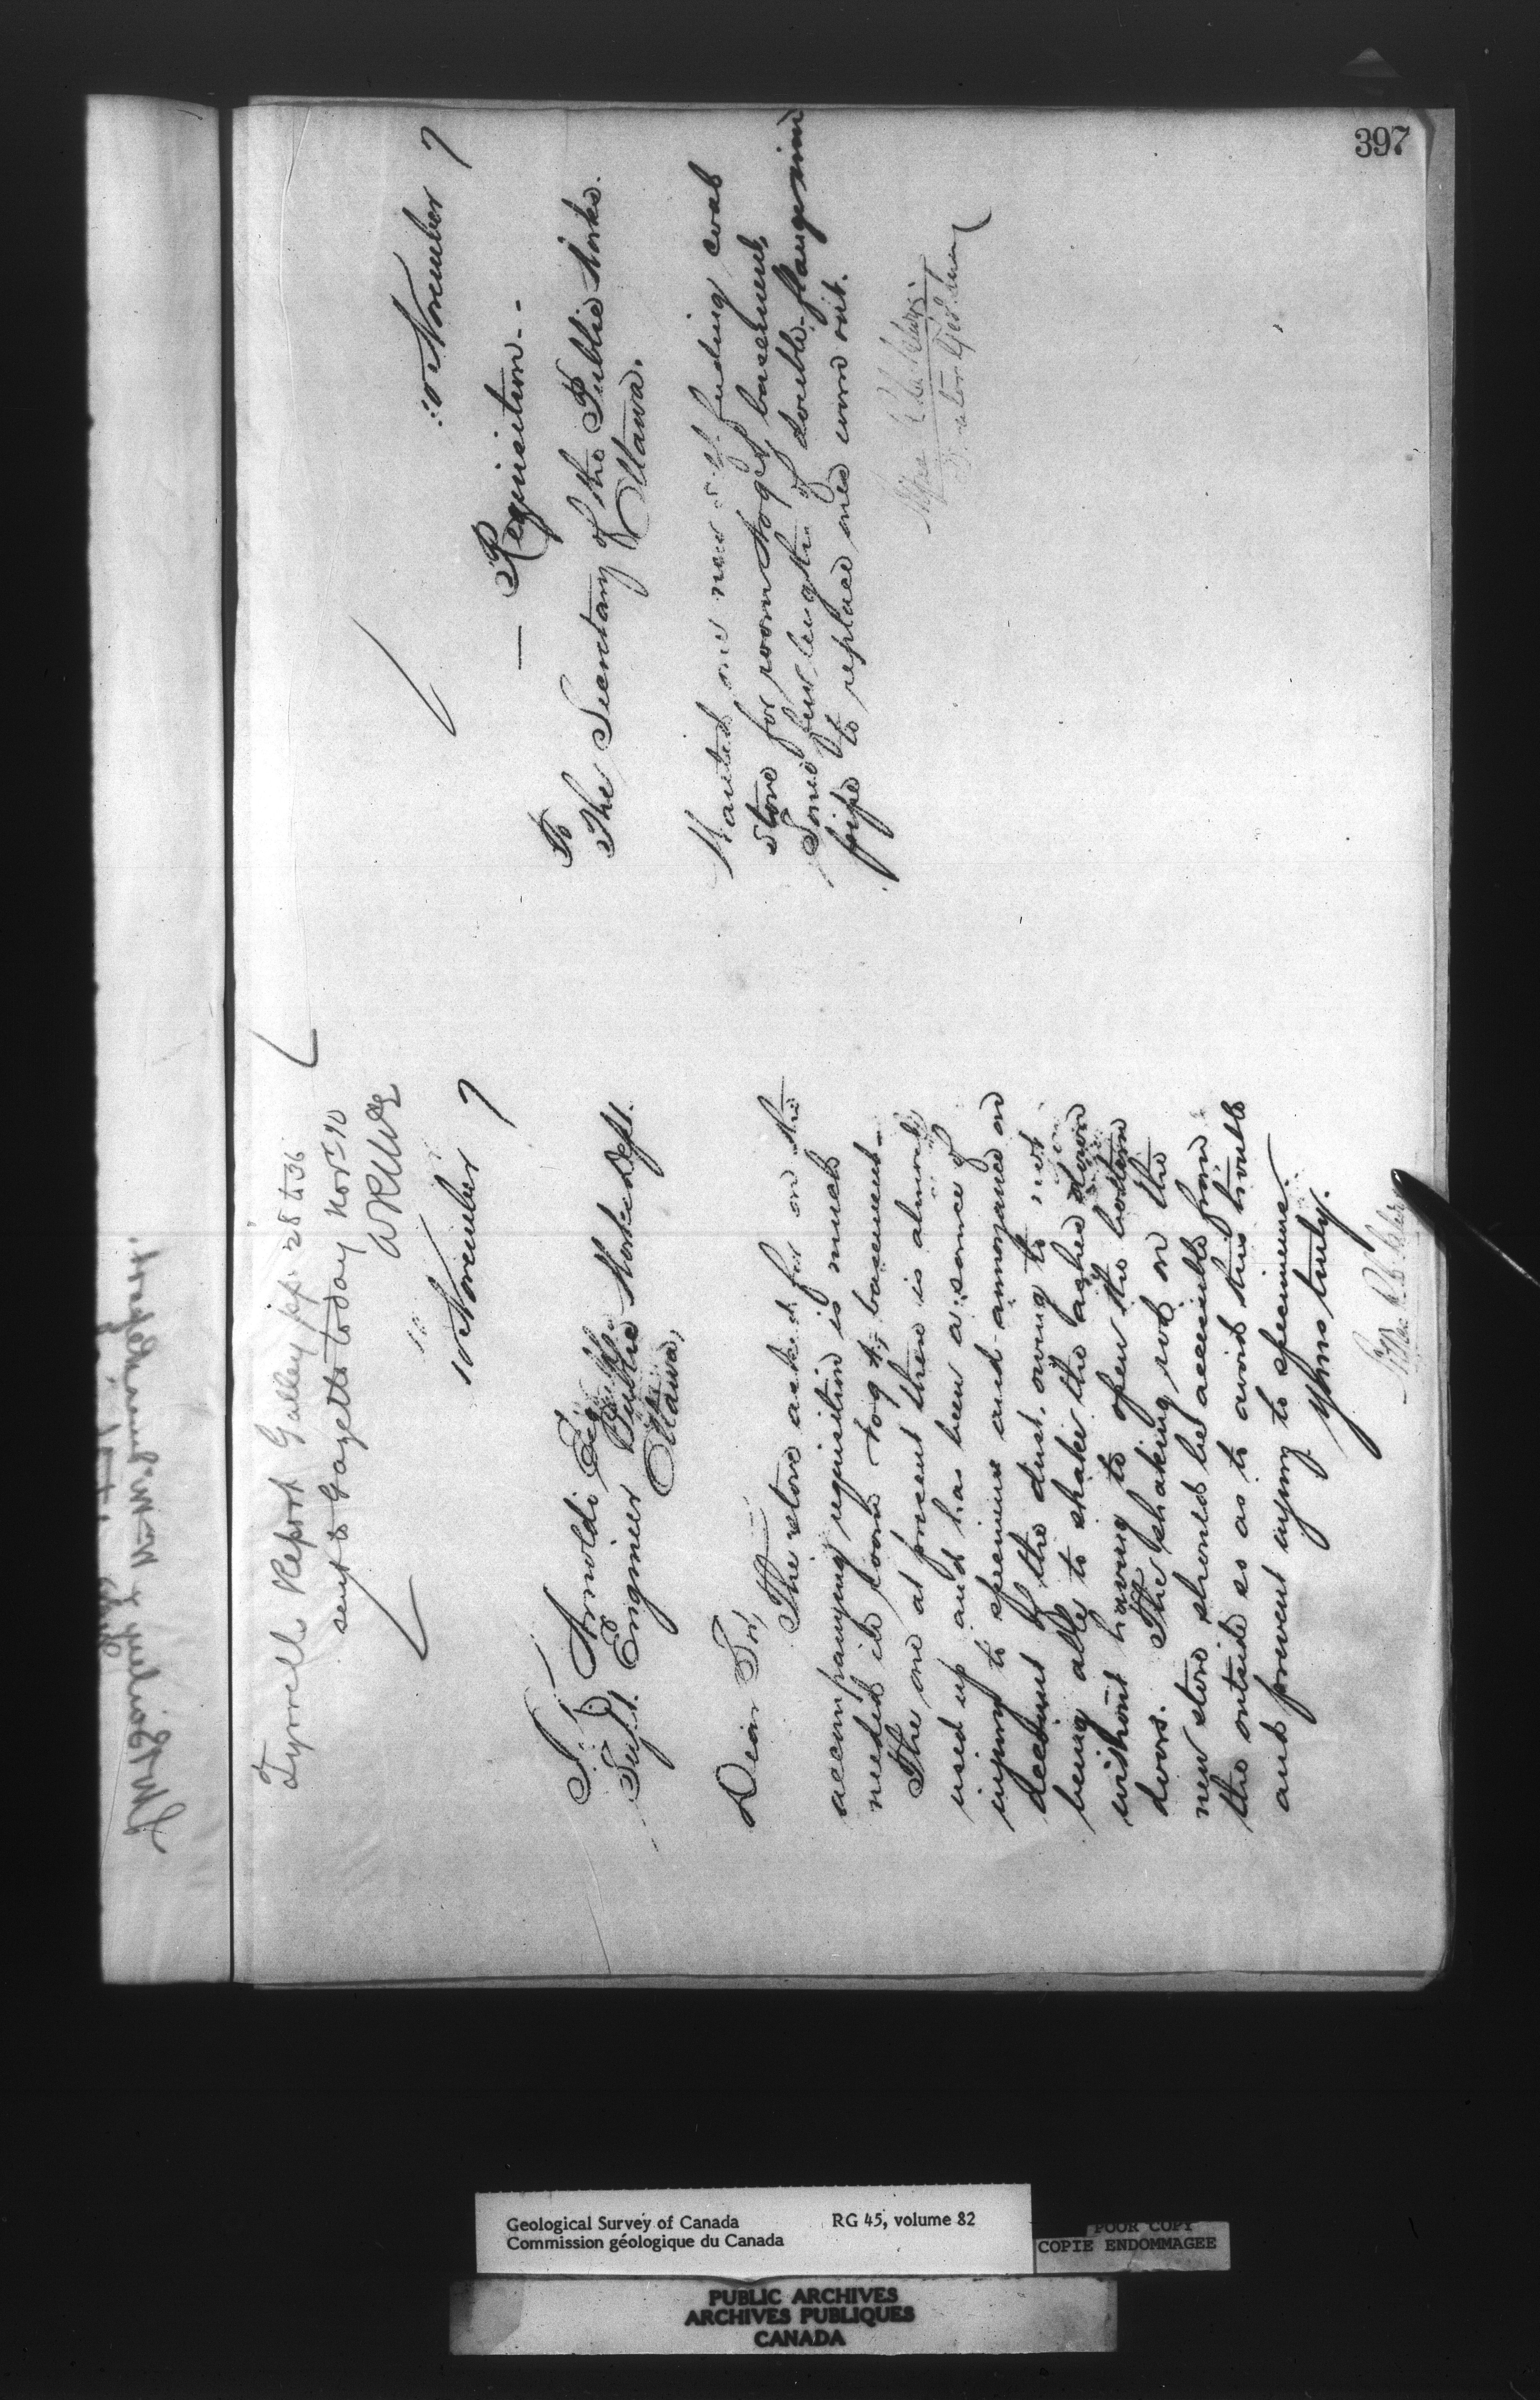 397
Tyrrell's Report Galley pp. 28 to 36
sent to Gazette today Nov. 10
10 November 7
T. D. Arnoldi Esq
Supt. Engineer Public Works Dept.
Ottawa,
Dear Sir,
The stove asked for on the
accompanying requisition is much
needed in room No 9, basement.
The one at present there is almost
used up and has been a source of
injury to specimens and annoyance on
account of the dust, owing to not
being able to shake the ashes down
without having to open the bottom
doors. The shaking rod on the
new stove should be accessible from
the outside so as to avoid this trouble
and prevent injury to specimens.
Yours truly.
10 November 7
— Requisition. -
To
The Secretary of the Public Works.
Ottawa.
Wanted one new self feeding coal
stove for room No 9, basement,
Some few lengths of double-flange
pipe to replace ones worn out.
Geological Survey of Canada RG 45, volume 82
Commission géologique du Canada
POOR COPY
COPIE ENDOMMAGEE
PUBLIC ARCHIVES
ARCHIVES PUBLIQUES
CANADA